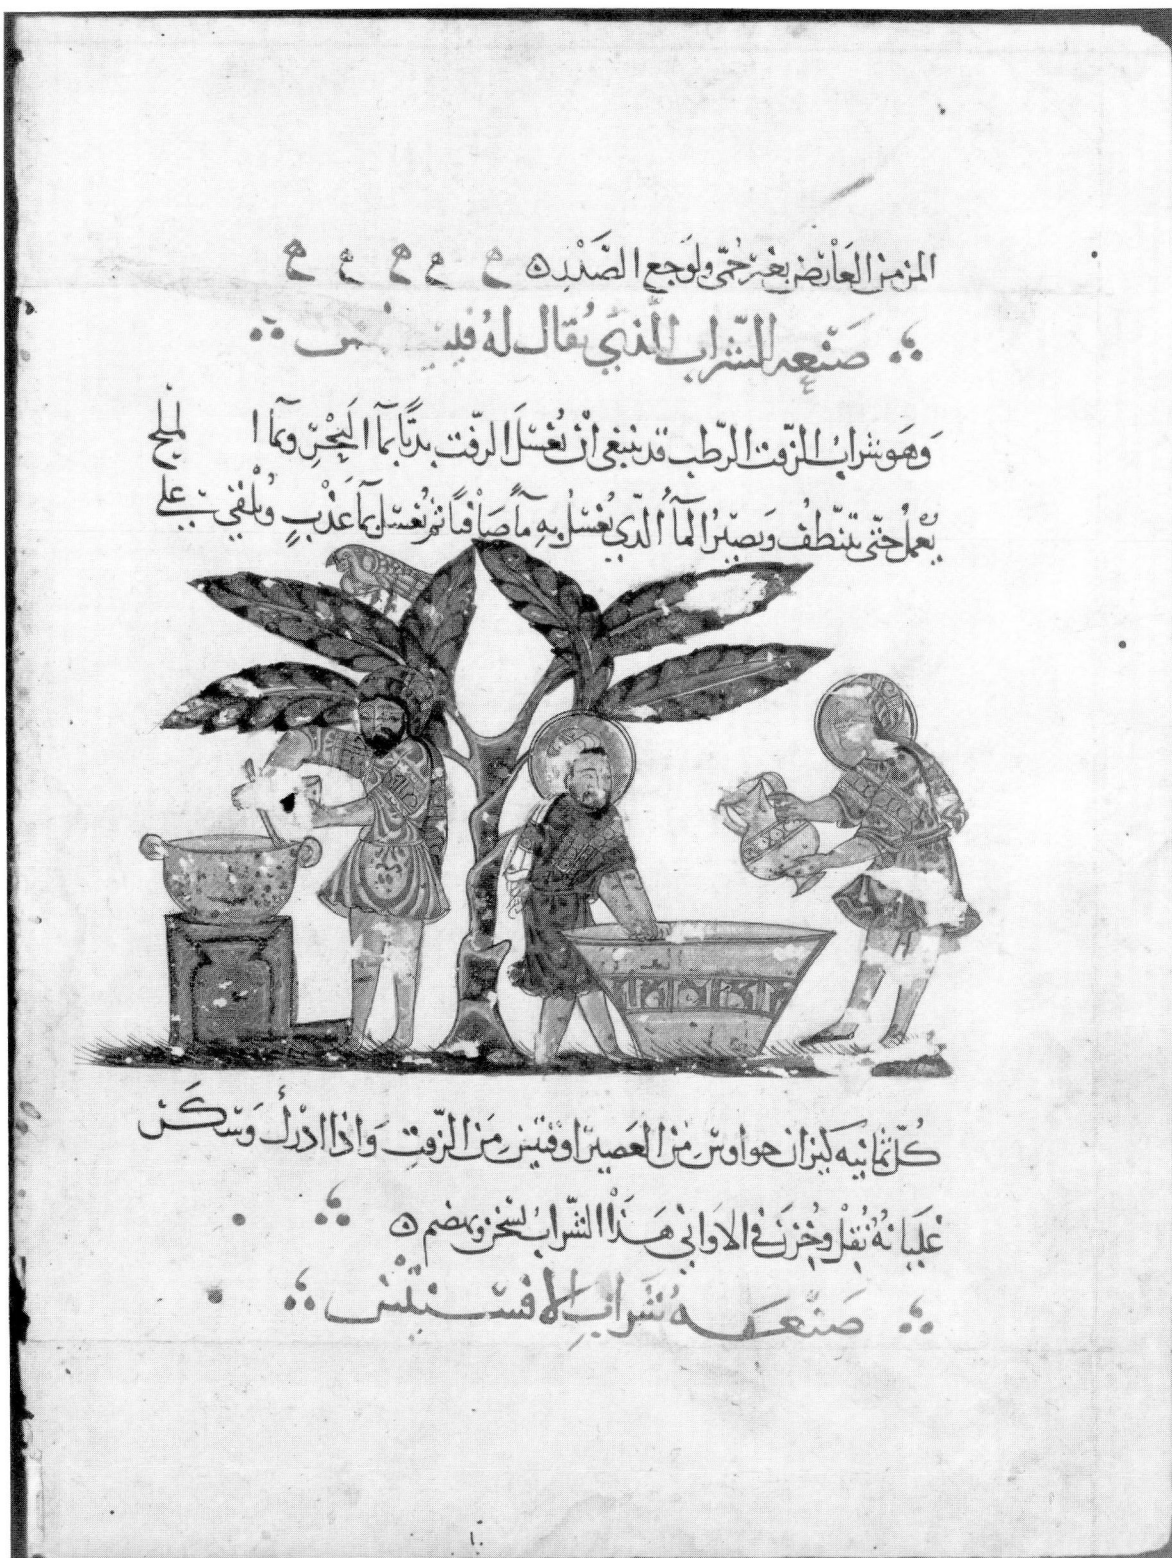 المزمن العارض بغير حمى ولوجع الصدر ه ه ه ه ه ه
صنعة الشراب الذي يقال له
وهو شراب الزفت الرطب قد ينبغي ان يغسل الزفت بديًا بمآ البحر وبمآ الملح
يعمل حتى يتنظف ويصير المآ الذي يغسل به مآً صافيًا ثم يغسل بمآ عذب ويلقي على
كل ثمانية كيزان حواوس من العصير اوقتين من الزفت واذا ادرك وسكن
غليانه نقل وخزن في الاواني هذا الشراب يسخن ويهضم ه
صنعة شراب الافسنتين